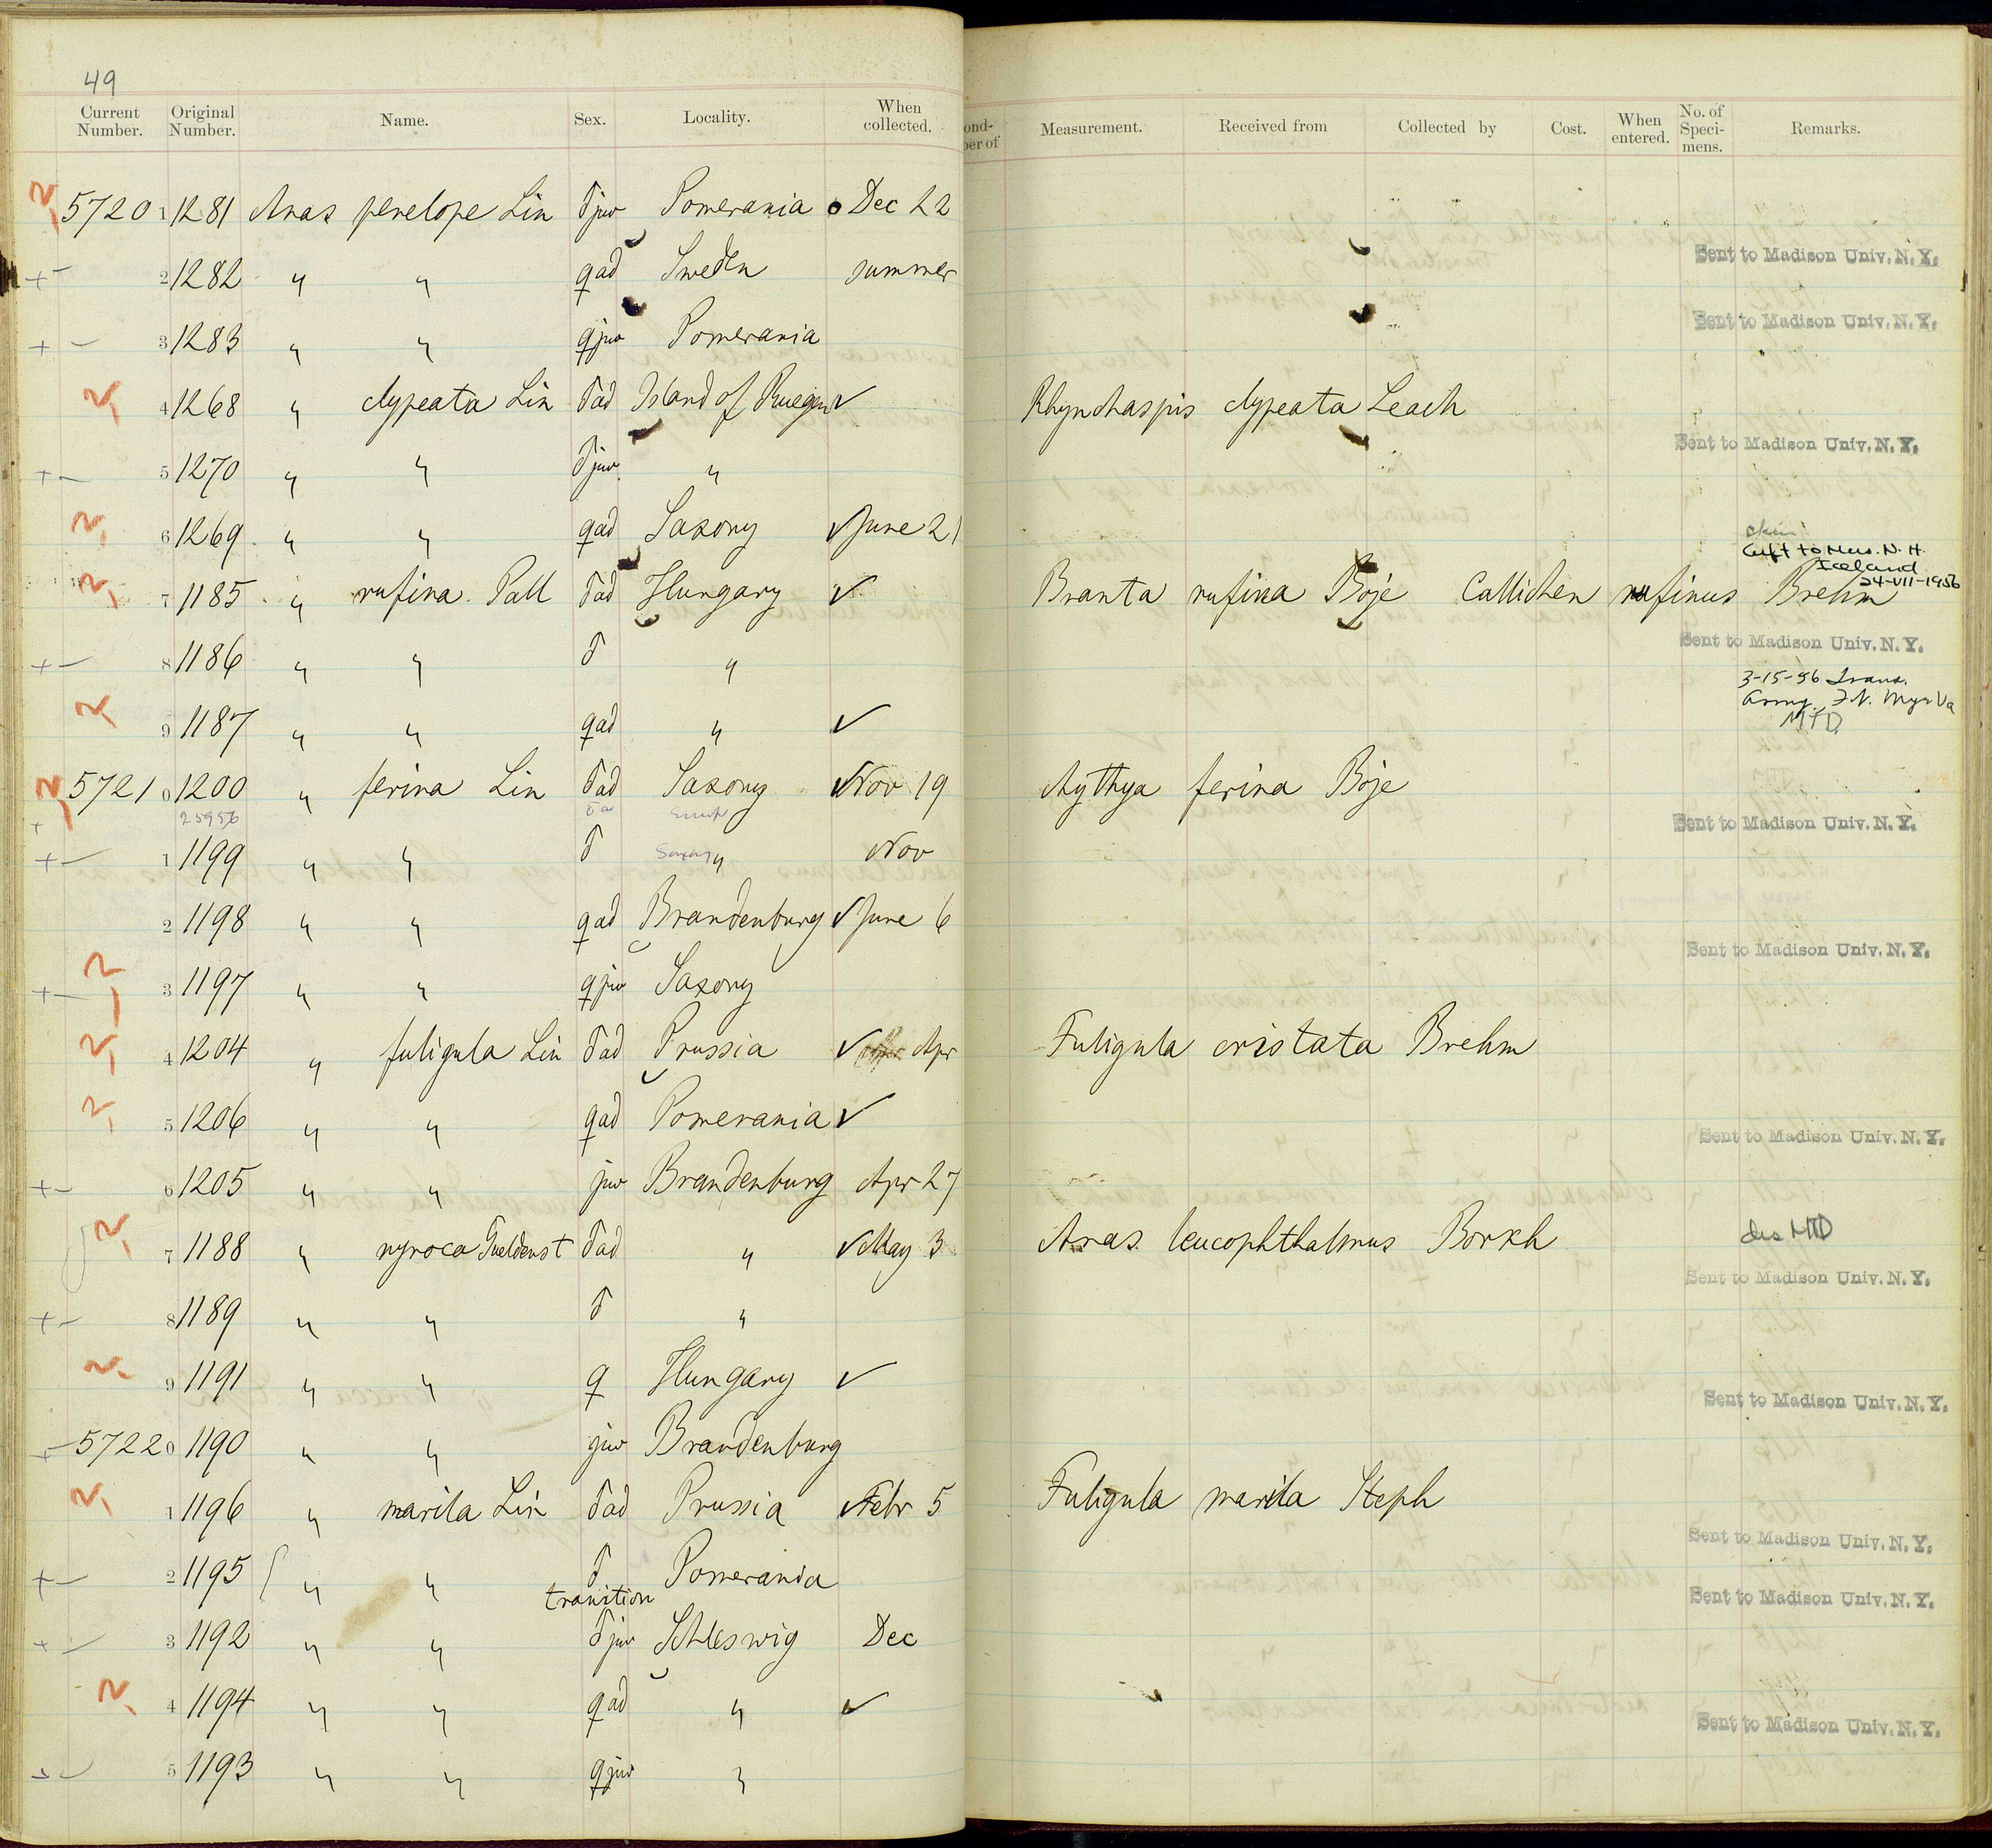 49
Current Number. Original Number. Name. Sex. Locality. When collected. Measurement. Received from Collected by Cost. When entered. No. of Speci- mens. Remarks.
5720 1 1281 Anas penelope Lin ♂ juv Pomerania Dec 22
2 1282 " " ♀ ad Sweden summer Sent to Madison Univ. N. Y.
3 1283 " " ♀ juv Pomerania Sent to Madison Univ. N. Y.
4 1268 " clypeata Lin ♂ ad Island of Ruegen ✓ Rhynchaspis clypeata Leach
5 1270 " " ♂ juv " Sent to Madison Univ. N. Y.
6 1269 " " ♀ ad Saxony ✓ June 21
skin
Gift to Mus. N. H.
Iceland
24-VII-1956
7 1185 " rufina Pall ♂ ad Hungary ✓ Branta rufina Boje Callichen rufinus Brehm
8 1186 " " ♂ " Sent to Madison Univ. N. Y.
3-15-56 Trans.
Army. Ft. Myer Va
MTD
9 1187 " " ♀ ad " ✓
5721 0 1200 " ferina Lin ♂ ad Saxony ✓ Nov 19 Aythya ferina Boje
25956
1 1199 " " ♂ Saxony " Nov Sent to Madison Univ. N. Y.
2 1198 " " ♀ ad Brandenburg ✓ June 6
3 1197 " " ♀ juv Saxony Sent to Madison Univ. N. Y.
4 1204 " fuligula Lin ♂ ad Prussia ✓ Apr Fuligula cristata Brehm
5 1206 " " ♀ ad Pomerania ✓
6 1205 " " juv Brandenburg Apr 27 Sent to Madison Univ. N. Y.
7 1188 " nyroca Gueldenst ♂ ad " ✓ May 3 Anas leucophthalmus Borkh des MTD
8 1189 " " ♂ " Sent to Madison Univ. N. Y.
9 1191 " " ♀ Hungary ✓
5722 0 1190 " " juv Brandenburg Sent to Madison Univ. N. Y.
1 1196 " marila Lin ♂ ad Prussia ✓ Febr 5 Fuligula marila Steph
2 1195 " " ♂ Pomerania Sent to Madison Univ. N. Y.
transition
3 1192 " " ♂ juv Schleswig Dec Sent to Madison Univ. N. Y.
4 1194 " " ♀ ad " ✓
5 1193 " " ♀ juv " Sent to Madison Univ. N. Y.